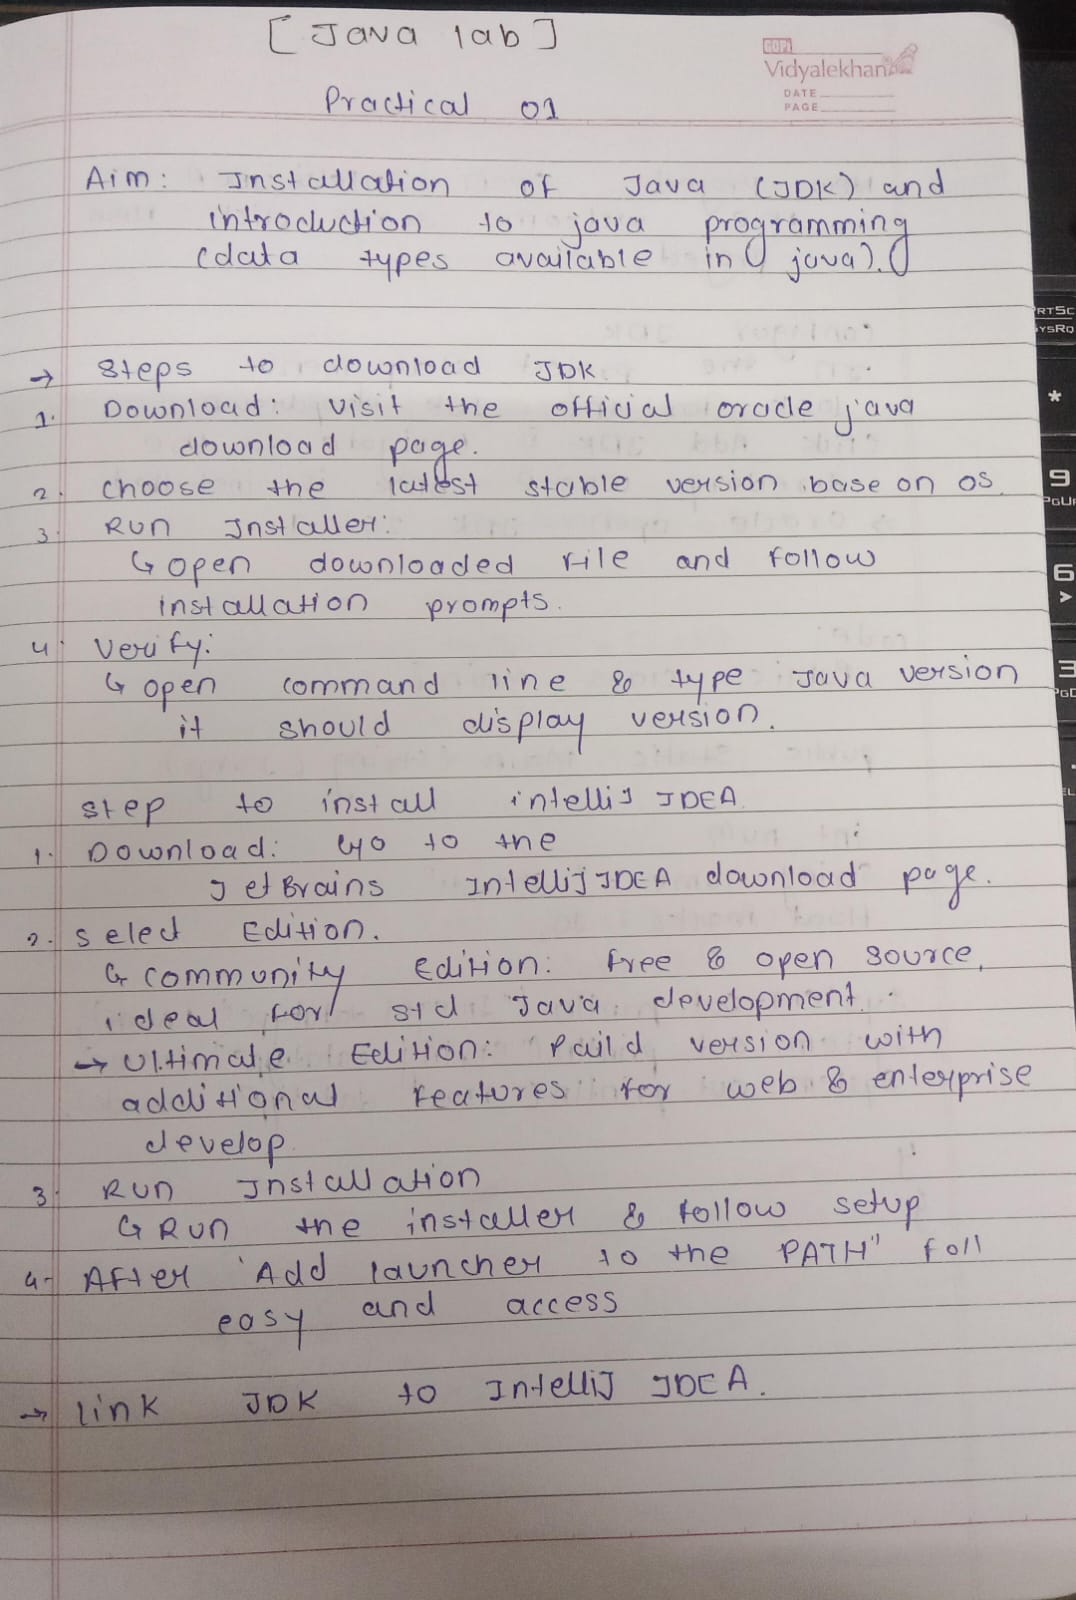 [Java lab]
GOPI
Vidyalekhan
DATE
PAGE
Practical 01
Aim: Installation of Java (JDK) and
introduction to java programming
(data types available in java).
→ Steps to download JDK
1. Download: visit the official oracle java
download page.
2. choose the latest stable version base on OS.
3. Run Installer:
↳ open downloaded file and follow
installation prompts.
4. Verify:
↳ open command line & type Java version
it should display version.
step to install intellij IDEA
1. Download: Go to the
JetBrains IntellijIDEA download page.
2. select Edition.
↳ community Edition: free & open source,
ideal for std Java development.
→ Ultimate Edition: Paild version with
additional features for web & enterprise
develop.
3. Run Installation
↳ Run the installer & follow setup
4. After "Add launcher to the PATH" foll
easy and access
→ link JDK to IntelliJ IDEA.
RTSC
YSRQ
*
9
PGUP
6
>
3
PGD